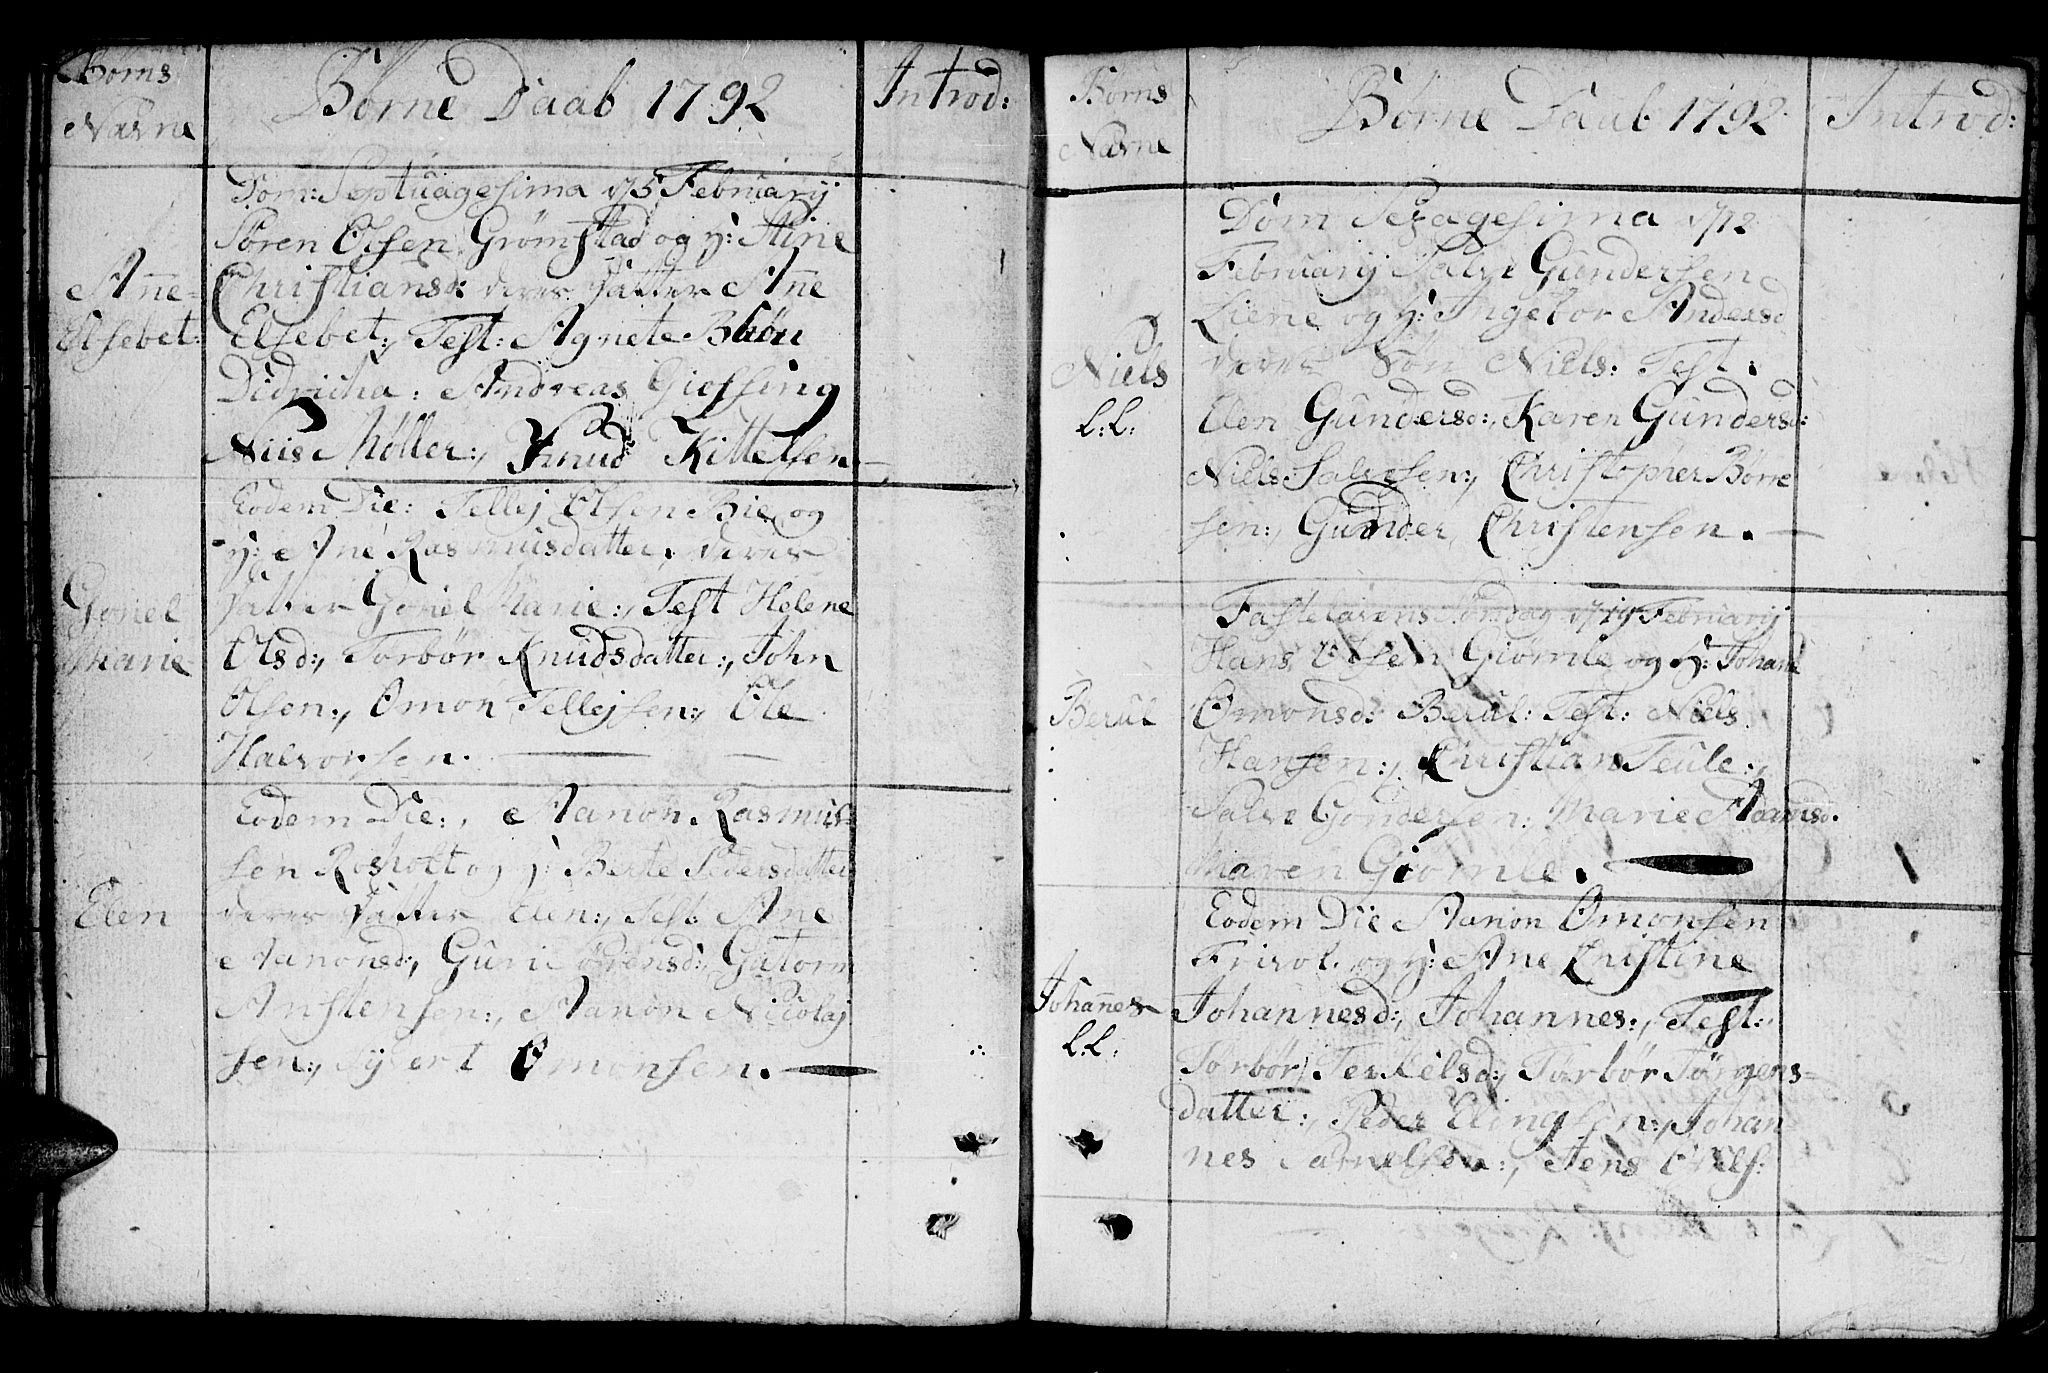 Börns
Navne
Börne Daab 1792
Introd:
Dom: Septuagesima d/5 Februarij
Sören Olsen Grömstad og H: Stine
Anne
Christiansd: deres datter Anne
Elsebet:
Elsebet:, Test: Agnete
Didricha: Andreas Giessing
Niis Møller:, Knud Kittelsen
Eodem Die: Tellej Olsen Bie og
H: Ane Rasmusdatter, deres
Gonel
datter Gonel Marie:, Test Helene
Marie
Olsd:, Torbör Knudsdatter:, John
Olsen:, Omon Tellejsen:, Ole
Halvorsen.
Eodem Die:, Aanon Rasmus
sen Rosholt og H: Berte Pedersdatter
Elen
deres datter Elen:, Test: Ane
Aanonsd:, Guri Sörensd:, Gutorm
Anstensen:, Aanon Nicolaj
sen:, Syvert Omonsen.
Börns
Navne
Börne Daab 1792
Introd:
Dom Sexagesima d/12
Februarij Salve Gundersen
Liene og H: Ingebor Andersd
Niels
deres Sön Niels: Test:
L:L:
Elen Gundersd:, Karen Gundersd:
Niels Salvesen:, Christopher Börre
sen:, Gunder Christensen.
Fastelavens Söndag d/19 Februarij
Hans Olsen Giömle og H: Johane
Berul
Omonsd: Berul: Test: Niels
Hansen:, Christian Teule:,
Salve Gondersen: Marie Adamsd.
Maren Giömle.
Eodem Die Aanon Omonsen
Frivol. og H: Ane Christine
Johannes
Johannesd:, Johannes:, Test:
L.L.
Torbör Terkelsd:, Torbör Jörgens=
datter:, Peder Elingsen:, Johan
nes Danielsen:, Jens